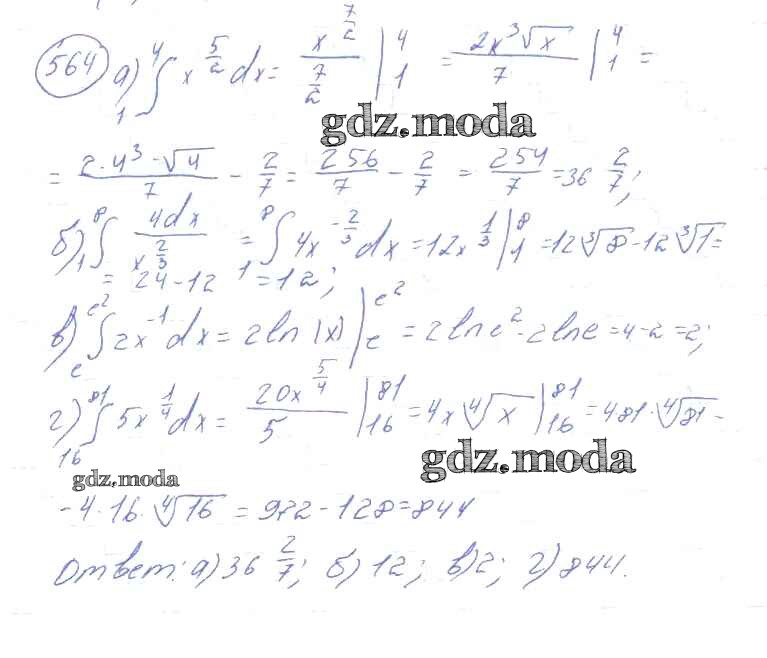 564 а) ∫₁⁴ x^(5/2) dx = x^(7/2) / (7/2) |₁⁴ = 2x³√x / 7 |₁⁴ =
gdz.moda
= 2·4³·√4 / 7 - 2/7 = 256/7 - 2/7 = 254/7 = 36 2/7;
б) ∫₁⁸ 4dx / x^(2/3) = ∫₁⁸ 4x^(-2/3) dx = 12x^(1/3) |₁⁸ = 12∛8 - 12∛1 =
= 24 - 12 = 12;
в) ∫ₑ^(e²) 2x^(-1) dx = 2ln|x| |ₑ^(e²) = 2lne² - 2lne = 4 - 2 = 2;
г) ∫₁₆⁸¹ 5x^(1/4) dx = 20x^(5/4) / 5 |₁₆⁸¹ = 4x ∜x |₁₆⁸¹ = 4 81·∜81 -
gdz.moda
gdz.moda
- 4·16·∜16 = 972 - 128 = 844
Ответ: а) 36 2/7; б) 12; в) 2; г) 844.